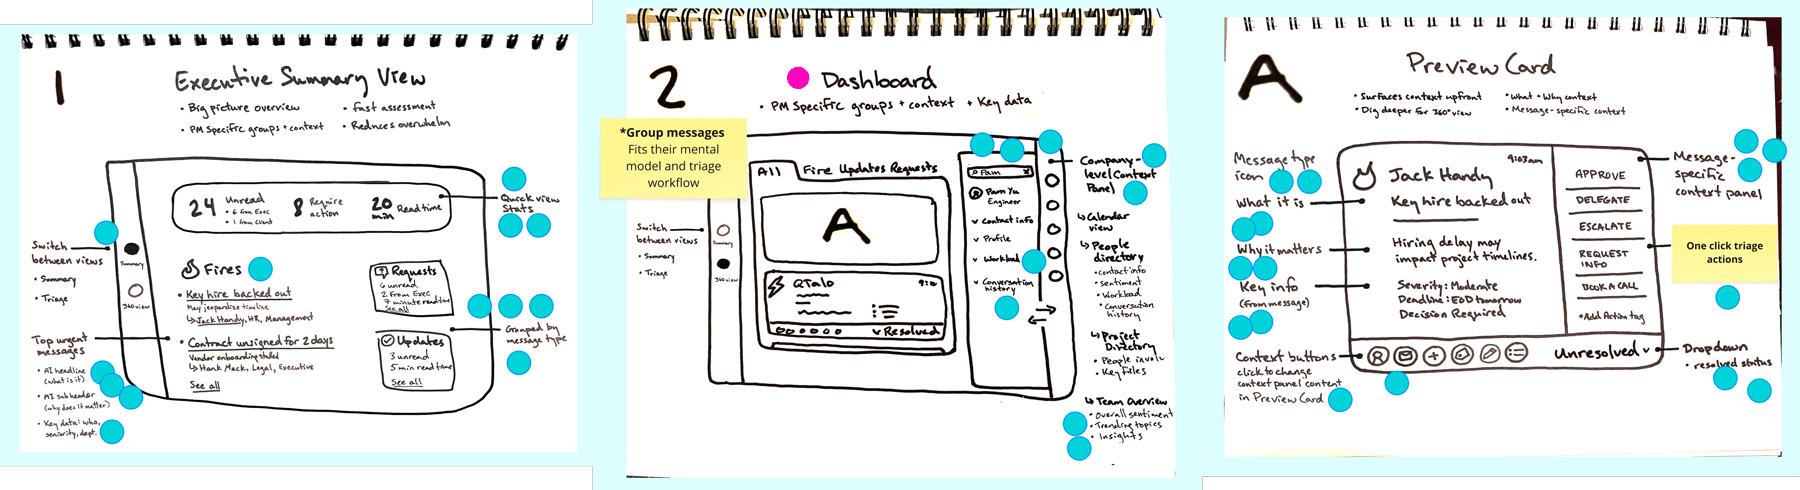 1
Executive Summary View
• Big picture overview
• Fast assessment
• PM Specific groups + context
• Reduces overwhelm
24
Unread
• 6 from Exec
• 1 from client
8
Require
action
20
min
Read time
Quick view
Stats
Switch
between views
• Summary
• Triage
Summary
360 view
Fires
• Key hire backed out
May jeopardize timeline
↳ Jack Handy, HR, Management
• Contract unsigned for 2 days
Vendor onboarding stalled
↳ Hank Mack, Legal, Executive
See all
Requests
6 unread
2 from Exec
7 minute read time
See all
Updates
3 unread
5 min read time
See all
Grouped by
message type
Top urgent
messages
• AI headline
(what is it)
• AI subheader
(why does it matter)
• Key data: who,
seniority, dept.
2
Dashboard
• PM Specific groups + context + Key data
*Group messages
Fits their mental
model and triage
workflow
All
Fire Updates Requests
A
QTalo
Resolved
Pam
x
Pam Yu
Engineer
Contact info
Profile
Workload
Conversation
history
Switch
between views
• Summary
• Triage
Summary
360 view
Company-
level Context
Panel
↳ Calendar
view
↳ People
directory
• contact info
• sentiment
• Workload
• Conversation
history
↳ Project
Directory
• People involv
• Key Files
↳ Team Overview
• Overall sentiment
• Trending topics
• Insights
A
Preview Card
• Surfaces context upfront
• What + Why context
• Dig deeper for 360° view
• Message-specific context
Message type
icon
What it is
Why it matters
Key info
(from message)
Context buttons
click to change
context panel content
in Preview Card
9:03am
Jack Handy
Key hire backed out
Hiring delay may
impact project timelines.
Severity: Moderate
Deadline: EOD tomorrow
Decision Required
APPROVE
DELEGATE
ESCALATE
REQUEST
INFO
BOOK A CALL
+Add Action tag
Unresolved
Message-
specific
context panel
One click triage
actions
Dropdown
• resolved status